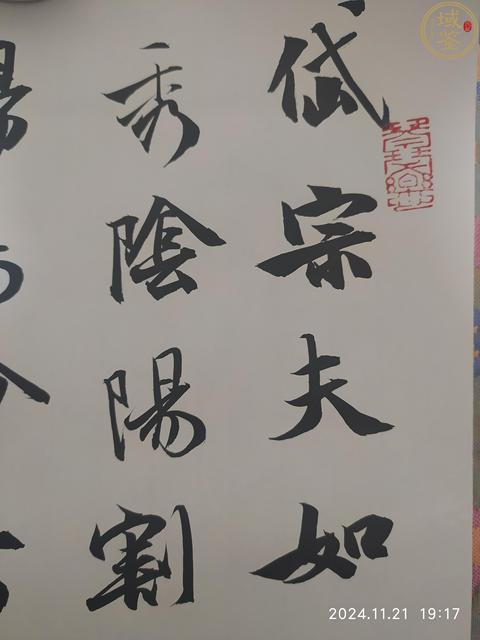 岱宗夫如
秀陰陽割
域鉴
2024.11.21 19:17